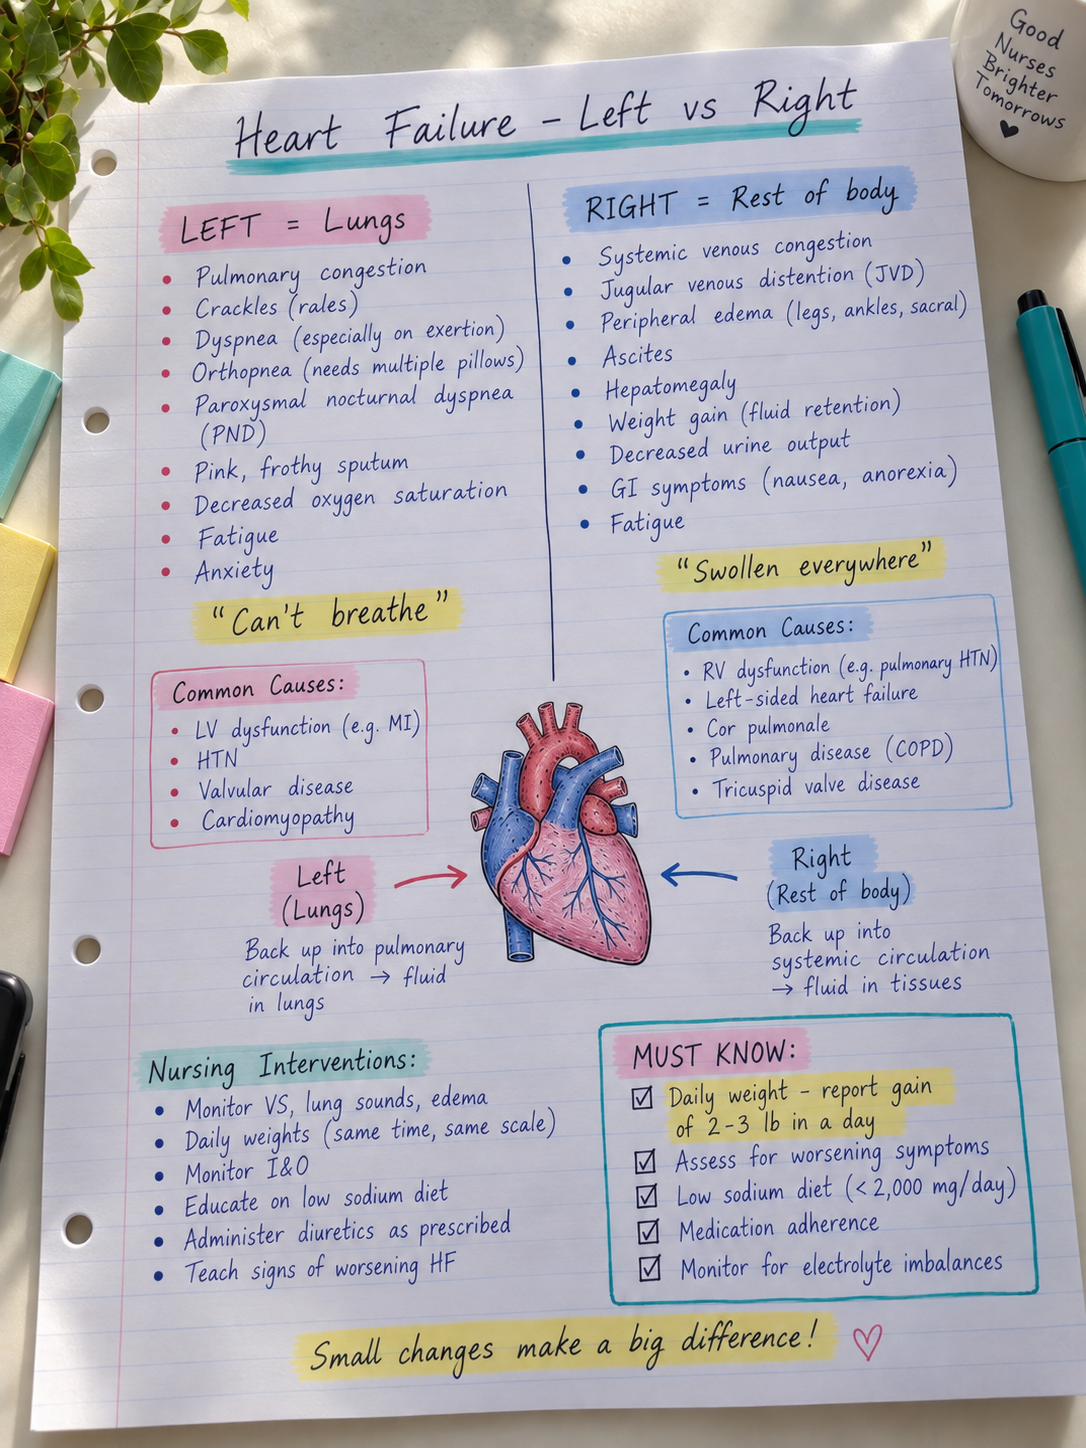 Good
Nurses
Brighter
Tomorrows
Heart Failure – Left vs Right
LEFT = Lungs
• Pulmonary congestion
• Crackles (rales)
• Dyspnea (especially on exertion)
• Orthopnea (needs multiple pillows)
• Paroxysmal nocturnal dyspnea
(PND)
• Pink, frothy sputum
• Decreased oxygen saturation
• Fatigue
• Anxiety
"Can't breathe"
Common Causes:
• LV dysfunction (e.g. MI)
• HTN
• Valvular disease
• Cardiomyopathy
RIGHT = Rest of body
• Systemic venous congestion
• Jugular venous distention (JVD)
• Peripheral edema (legs, ankles, sacral)
• Ascites
• Hepatomegaly
• Weight gain (fluid retention)
• Decreased urine output
• GI symptoms (nausea, anorexia)
• Fatigue
"Swollen everywhere"
Common Causes:
• RV dysfunction (e.g. pulmonary HTN)
• Left-sided heart failure
• Cor pulmonale
• Pulmonary disease (COPD)
• Tricuspid valve disease
Left
(Lungs)
Back up into pulmonary
circulation → fluid
in lungs
Right
(Rest of body)
Back up into
systemic circulation
→ fluid in tissues
Nursing Interventions:
• Monitor VS, lung sounds, edema
• Daily weights (same time, same scale)
• Monitor I&O
• Educate on low sodium diet
• Administer diuretics as prescribed
• Teach signs of worsening HF
MUST KNOW:
☑ Daily weight – report gain
of 2-3 lb in a day
☑ Assess for worsening symptoms
☑ Low sodium diet (< 2,000 mg/day)
☑ Medication adherence
☑ Monitor for electrolyte imbalances
Small changes make a big difference! ♡